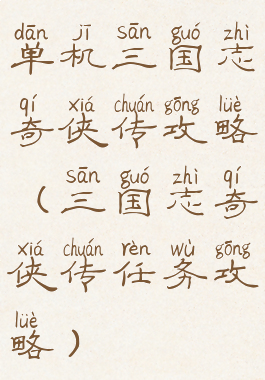 dān jī sān guó zhì
单机三国志
qí xiá chuán gōng lüè
奇侠传攻略
sān guó zhì qí
(三国志奇
xiá chuán rèn wù gōng
侠传任务攻
lüè
略)